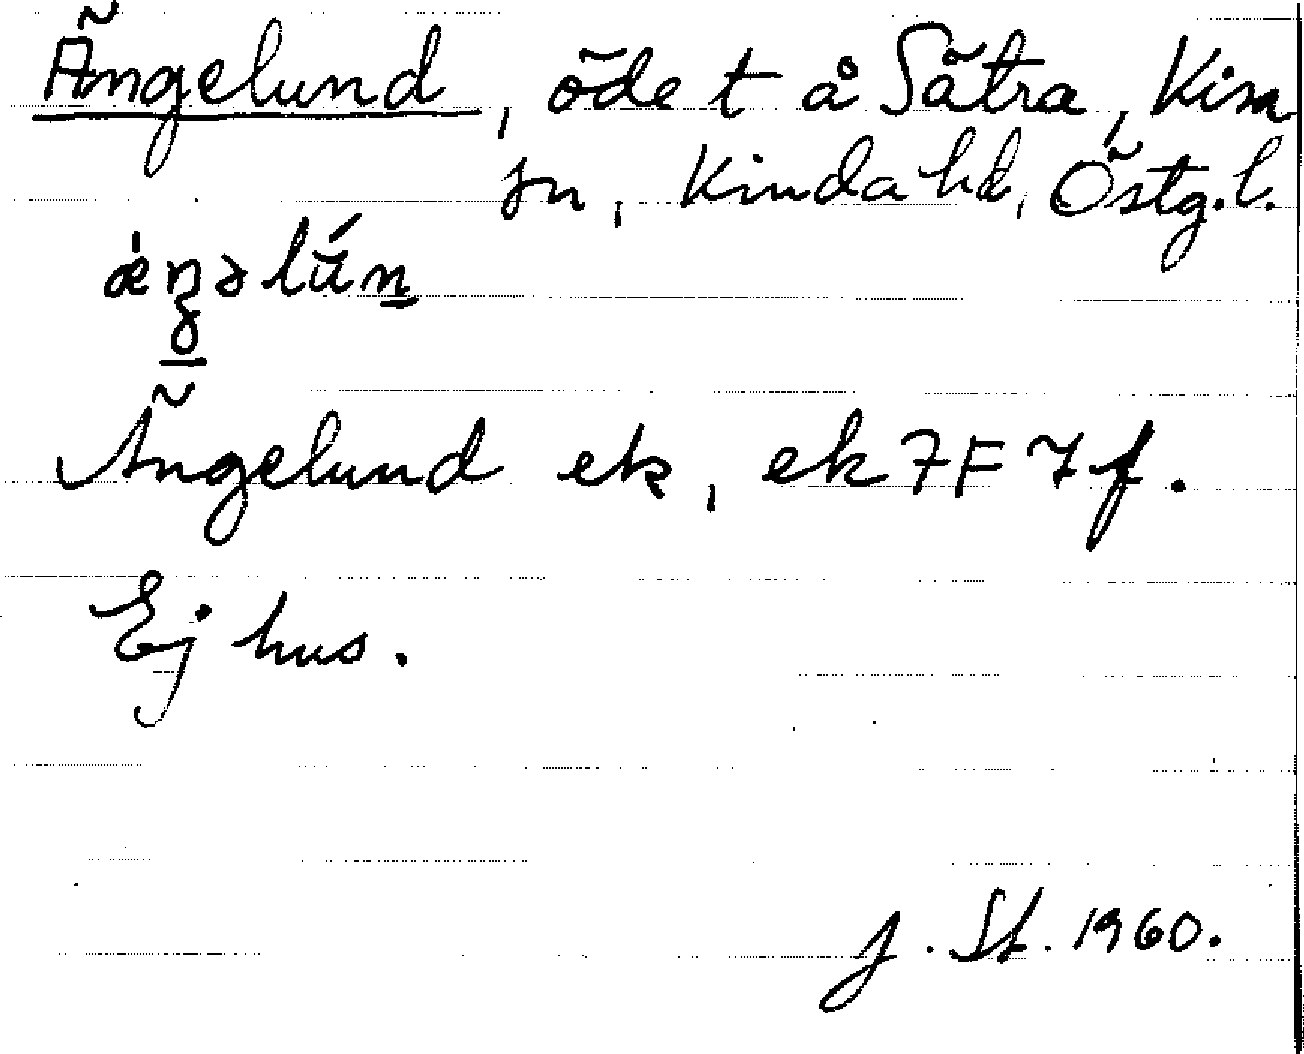 Ängelund, öde t å Sätra, Kisa
sn, Kinda hd, Östg.l.
ǽŋəlún
Ängelund ek, ek 7F 7f.
Ej hus.
J. St. 1960.